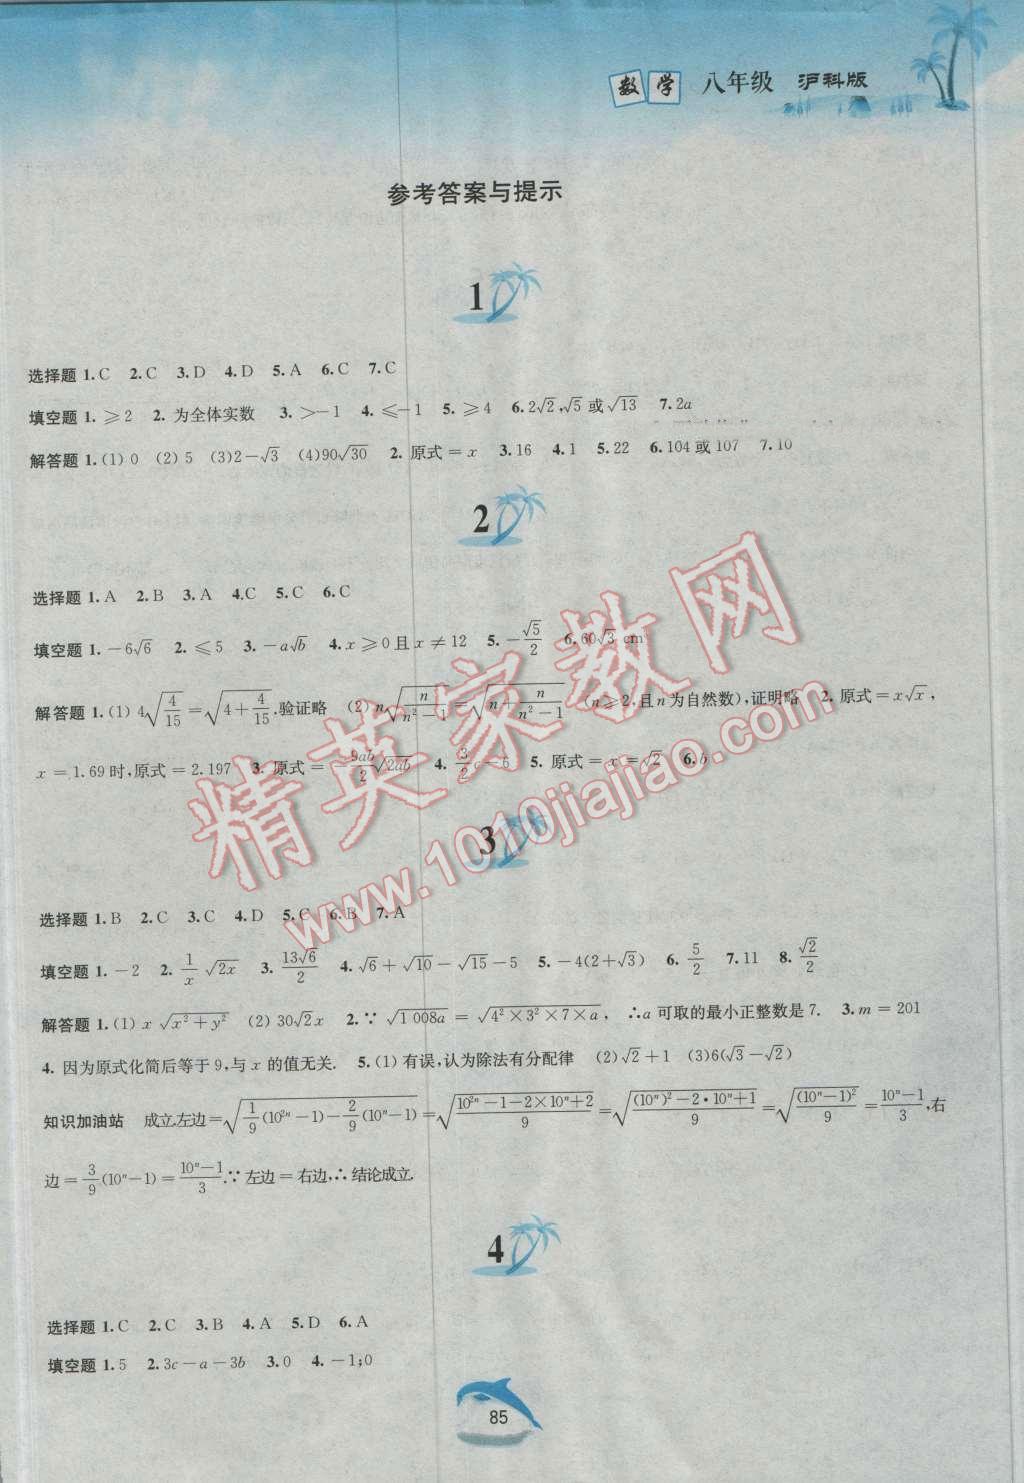 数学 八年级 沪科版
参考答案与提示
1
选择题 1.C 2.C 3.D 4.D 5.A 6.C 7.C
填空题 1.≥2 2.为全体实数 3.>-1 4.≤-1 5.≥4 6.2√2,√5或√13 7.2a
解答题 1.(1) 0 (2) 5 (3)2-√3 (4)90√30 2. 原式=x 3.16 4.1 5.22 6.104或107 7.10
2
选择题 1.A 2.B 3.A 4.C 5.C 6.C
填空题 1.-6√6 2.≤5 3.-a√b 4.x≥0且x≠12 5.-√5/2 6.60√3 cm
解答题 1.(1) 4√(4/15)=√(4+4/15).验证略 (2) n√(n/(n²-1))=√(n+n/(n²-1)) (n≥2,且n为自然数),证明略 2. 原式=x√x,
x=1.69时,原式=2.197 3. 原式=-9ab/2√2ab 4. 3/2c-6 5. 原式=x=√2 6.b
3
选择题 1.B 2.C 3.C 4.D 5.C 6.B 7.A
填空题 1.-2 2. 1/x √2x 3. 13√6/2 4.√6+√10-√15-5 5.-4(2+√3) 6. 5/2 7.11 8. √2/2
解答题 1.(1) x√(x²+y²) (2) 30√2x 2.∵√(1 008a)=√(4²×3²×7×a), ∴a可取的最小正整数是7. 3.m=201
4. 因为原式化简后等于9,与x的值无关. 5.(1) 有误,认为除法有分配律 (2)√2+1 (3)6(√3-√2)
知识加油站 成立.左边=√(1/9(10²ⁿ-1)-2/9(10ⁿ-1))=√((10²ⁿ-1-2×10ⁿ+2)/9)=√(((10ⁿ)²-2·10ⁿ+1)/9)=√((10ⁿ-1)²/9)=(10ⁿ-1)/3,右
边=3/9(10ⁿ-1)=(10ⁿ-1)/3.∵左边=右边,∴结论成立.
4
选择题 1.C 2.C 3.B 4.A 5.D 6.A
填空题 1.5 2.3c-a-3b 3.0 4.-1;0
85
精英家教网
www.1010jiajiao.com